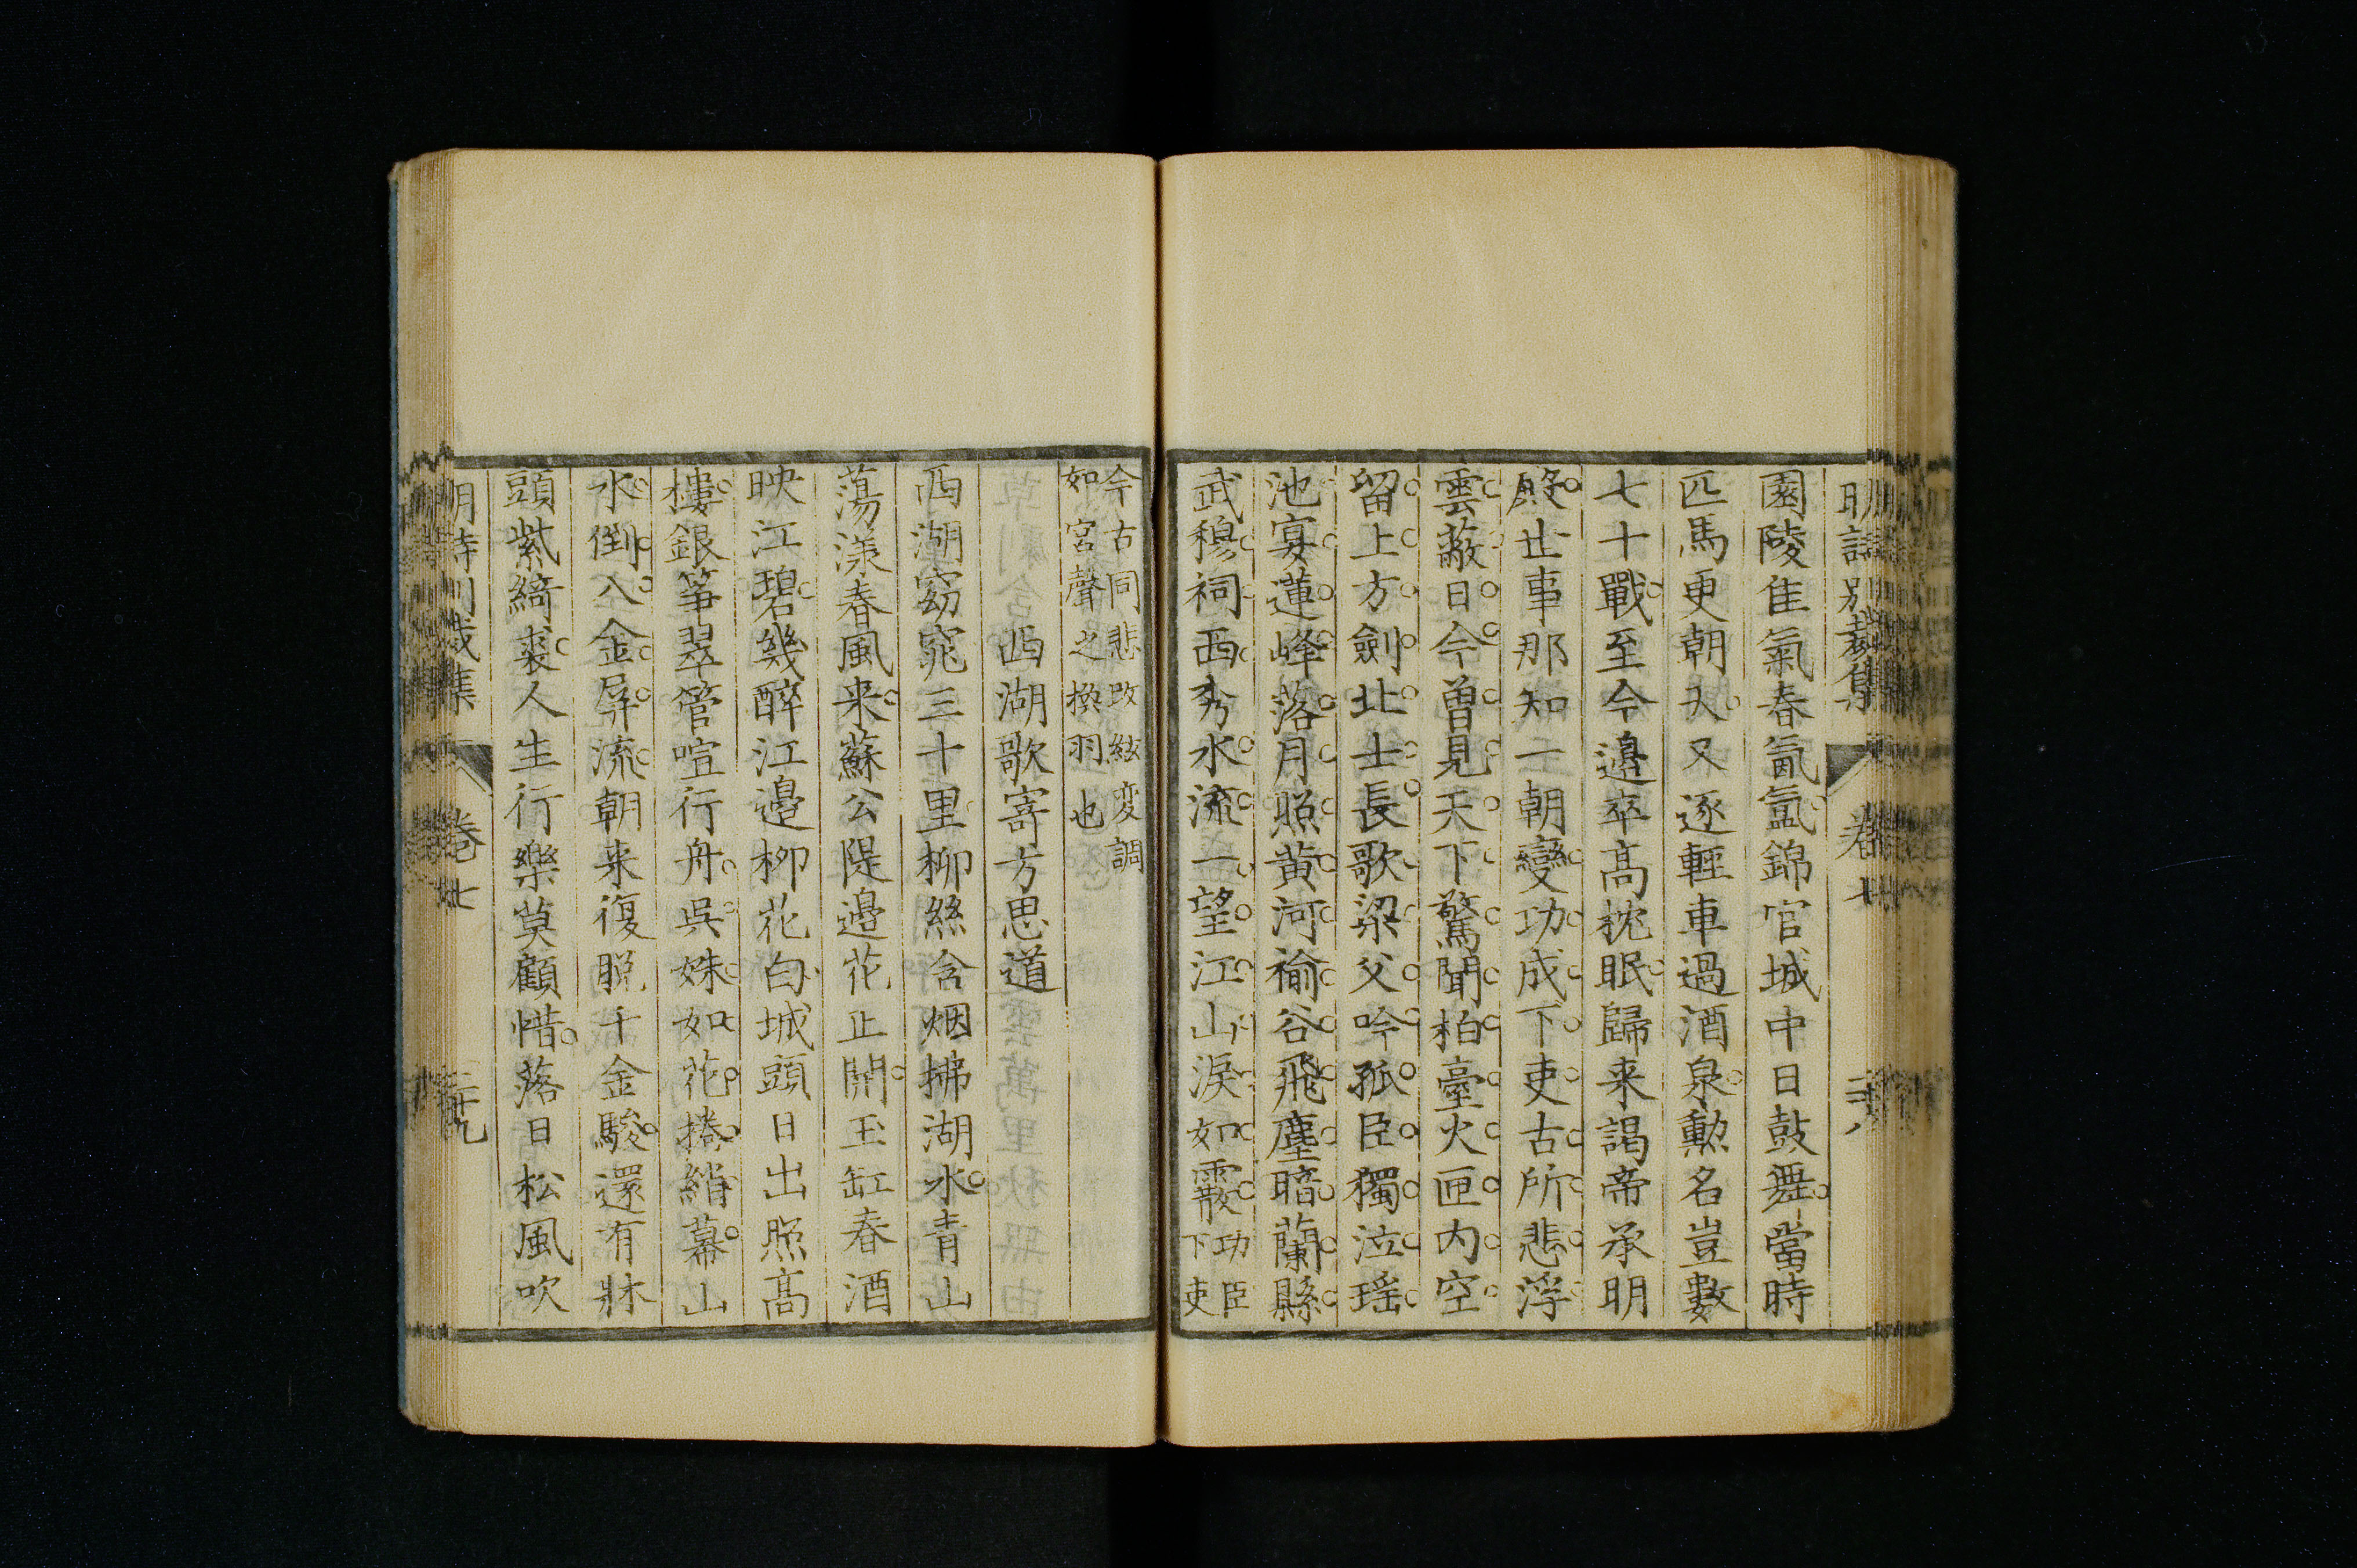 明詩別裁集 卷七 二十八
園陵佳氣春氤氳錦官城中日鼓舞當時
匹馬更朝天又逐輕車過酒泉勲名豈數
七十戰至今邉卒髙枕眠歸来謁帝承明
殿世事那知一朝變功成下吏古所悲浮
雲蔽日今曽見天下驚聞柏臺火匣内空
留上方劍北士長歌梁父吟孤臣獨泣瑶
池宴蓮峰落月照黄河褕谷飛塵暗蘭縣
武穆祠西秀水流一望江山淚如霰功臣下吏
今古同悲改絃变調
如宮聲之換羽也
西湖歌寄方思道
西湖窈窕三十里柳絲含烟拂湖水青山
蕩漾春風来蘇公隄邉花正開玉缸春酒
映江碧幾醉江邉柳花白城頭日出照髙
樓銀筝翠管喧行舟吳姝如花捲綃幕山
水倒入金屏流朝来復脱千金駿還有牀
頭紫綺裘人生行樂莫顧惜落日松風吹
明詩別裁集 卷七 二十九